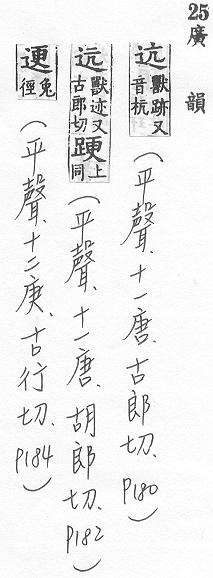 25廣韻
迒獸跡又音杭（平聲、十一唐、古郎切、P180）
迒獸迹又古郎切䟘上同（平聲、十一唐、胡郎切、P182）
𨁈兔徑（平聲、十二庚、古行切、P184）